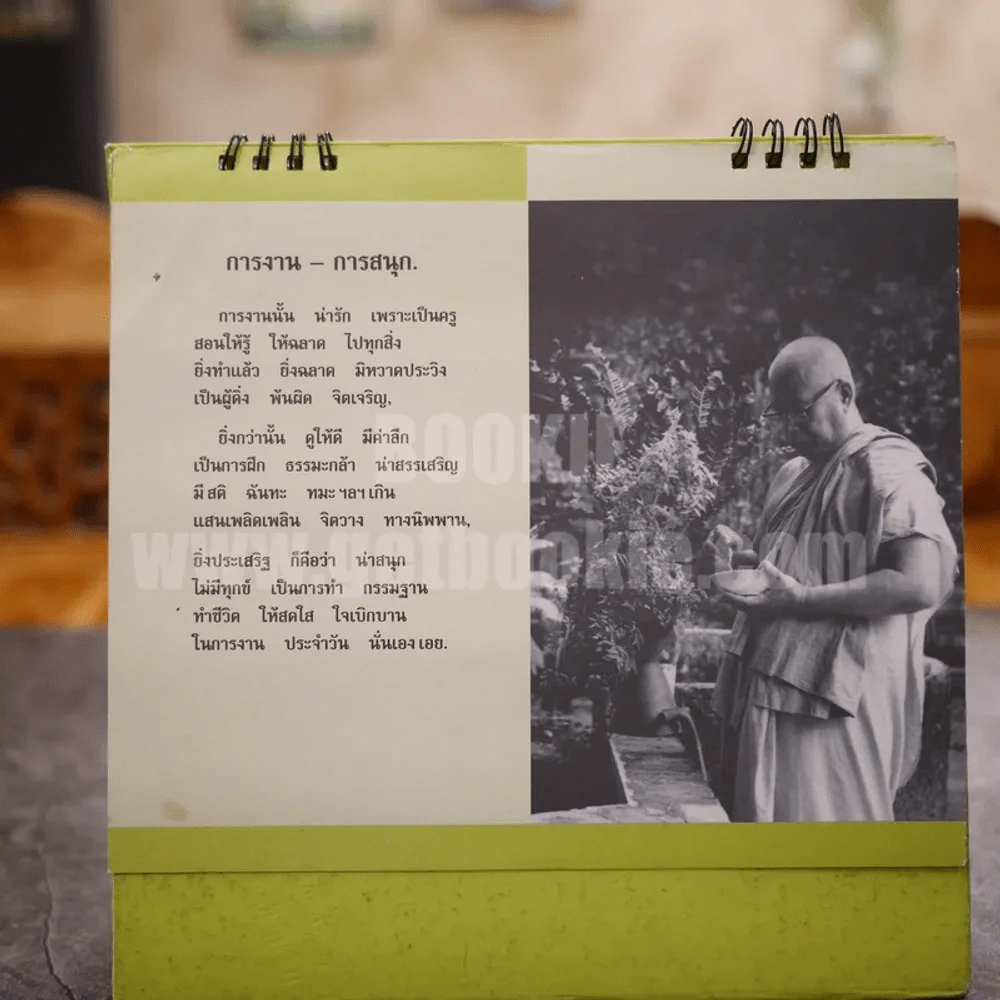 การงาน – การสนุก.
การงานนั้น น่ารัก เพราะเป็นครู
สอนให้รู้ ให้ฉลาด ไปทุกสิ่ง
ยิ่งทำแล้ว ยิ่งฉลาด มิหวาดประวิง
เป็นผู้ดิ่ง พ้นผิด จิตเจริญ,
ยิ่งกว่านั้น ดูให้ดี มีค่าลึก
เป็นการฝึก ธรรมะกล้า น่าสรรเสริญ
มี สติ ฉันทะ ทมะ ฯลฯ เกิน
แสนเพลิดเพลิน จิตวาง ทางนิพพาน,
ยิ่งประเสริฐ ก็คือว่า น่าสนุก
ไม่มีทุกข์ เป็นการทำ กรรมฐาน
ทำชีวิต ให้สดใส ใจเบิกบาน
ในการงาน ประจำวัน นั่นเอง เอย.
BOOKIE
www.getbookie.com